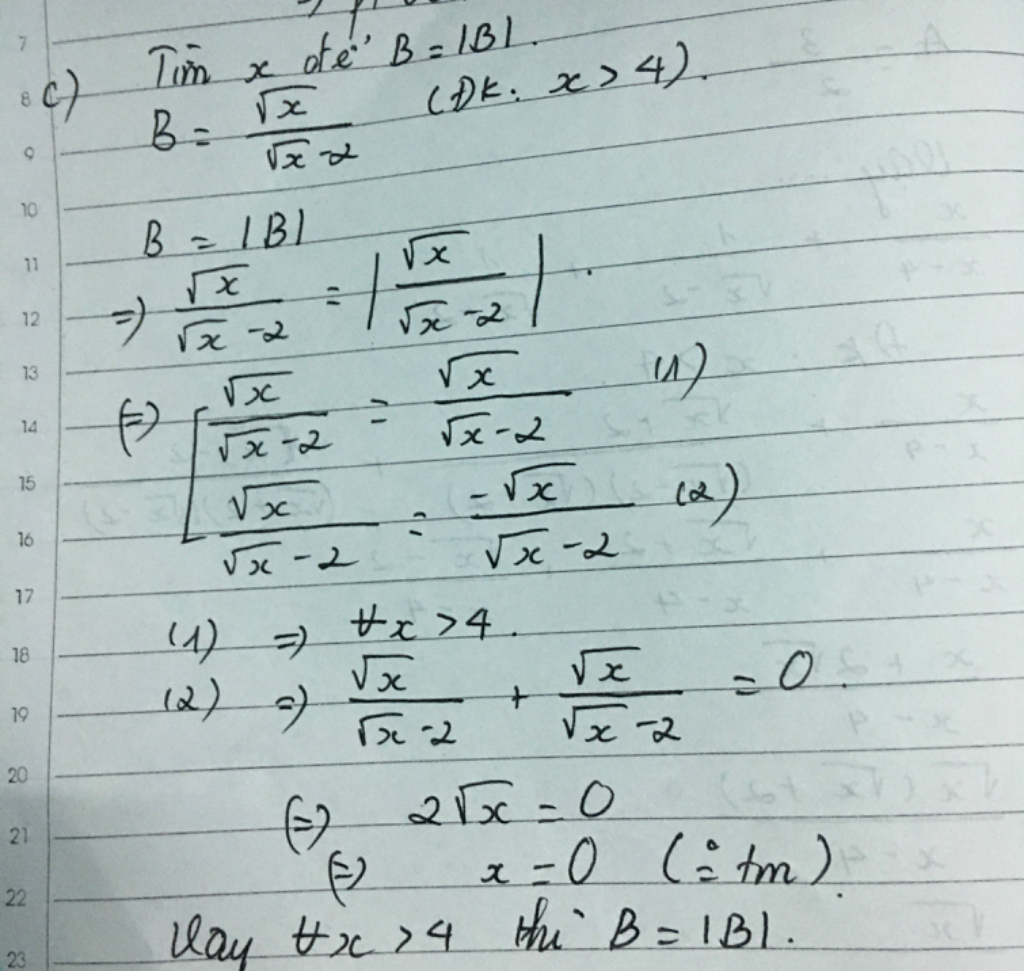 7
8 c) Tìm x để B = |B|.
9 B = √x / (√x - 2) (ĐK: x > 4).
10
11 B = |B|
12 => √x / (√x - 2) = |√x / (√x - 2)|.
13
14 (=) [ √x / (√x - 2) = √x / (√x - 2) (1)
15
16 √x / (√x - 2) = -√x / (√x - 2) (2)
17
18 (1) => ∀x > 4.
19 (2) => √x / (√x - 2) + √x / (√x - 2) = 0.
20
21 (=) 2√x = 0
22 (=) x = 0 (
tm).
23 Vay ∀x > 4 thì B = |B|.